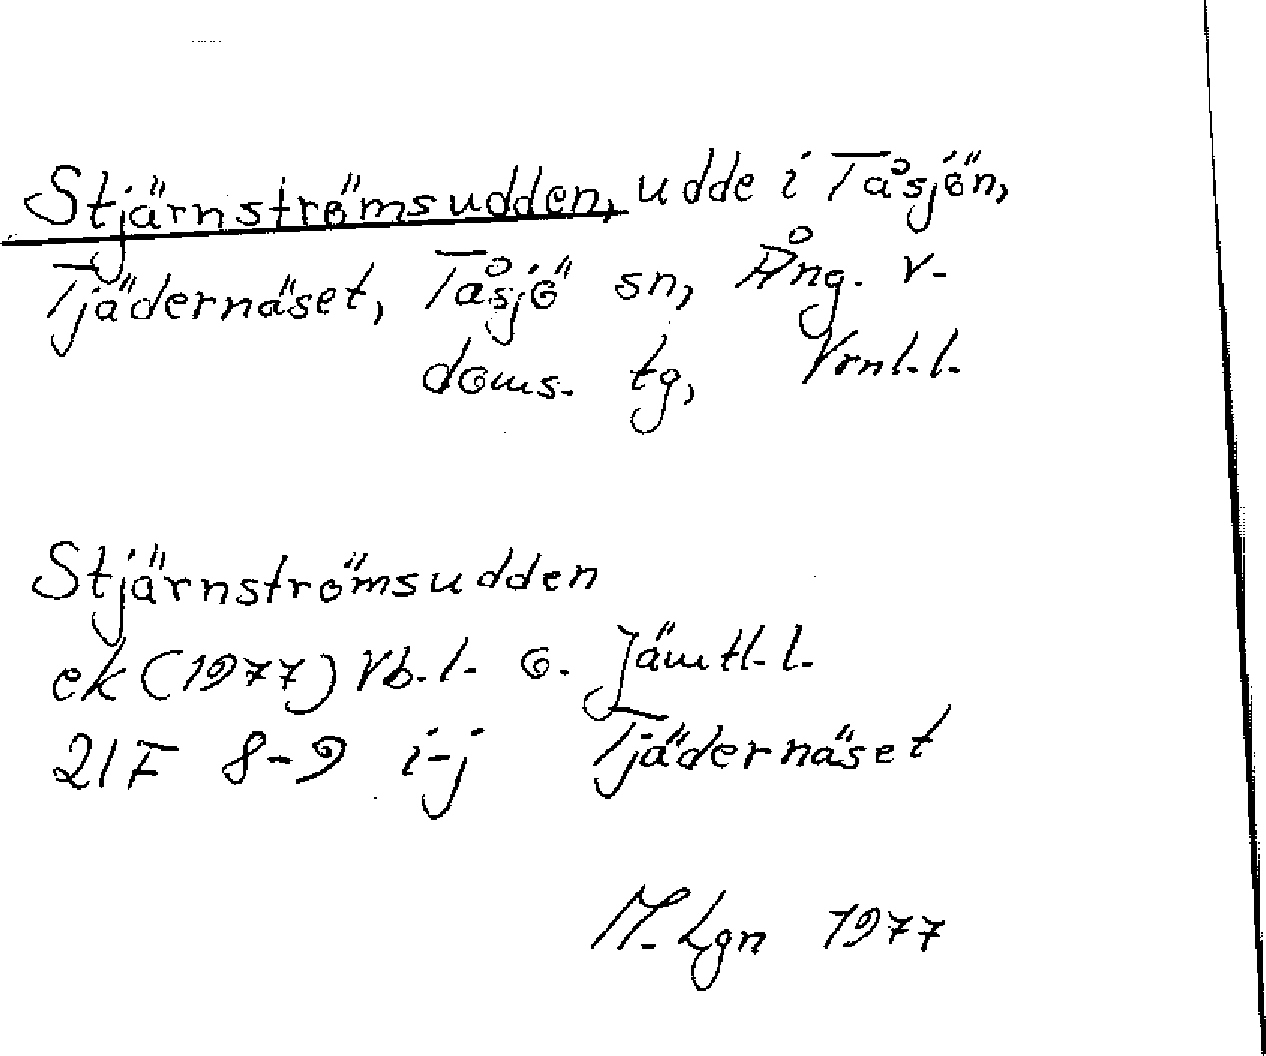 Stjärnströmsudden, udde i Tåsjön,
Tjädernäset, Tåsjö sn, Ång. v-
doms. tg, Vrnl.l.
Stjärnströmsudden
ek (1977) Vb.l. o. Jämtl.l.
21F 8-9 i-j Tjädernäset
M. Lgn 1977